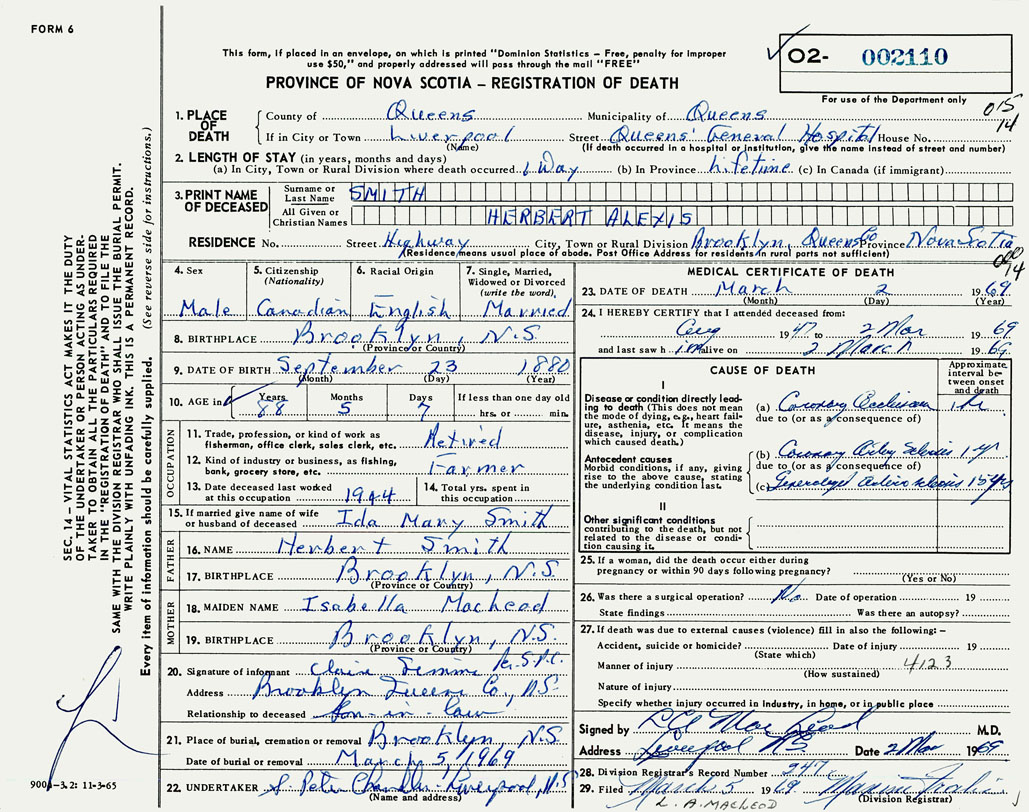 FORM 6
This form, if placed in an envelope, on which is printed "Dominion Statistics – Free, penalty for improper
use $50," and properly addressed will pass through the mail "FREE"
PROVINCE OF NOVA SCOTIA – REGISTRATION OF DEATH
02- 002110
For use of the Department only
015
14
1. PLACE OF DEATH
County of Queens Municipality of Queens
If in City or Town Liverpool Street Queens' General Hospital House No.
(Name) (If death occurred in a hospital or institution, give the name instead of street and number)
2. LENGTH OF STAY (in years, months and days)
(a) In City, Town or Rural Division where death occurred 1 Day (b) In Province Lifetime (c) In Canada (if immigrant)
3. PRINT NAME OF DECEASED
Surname or Last Name SMITH
All Given or Christian Names HERBERT ALEXIS
RESIDENCE No. Street Highway City, Town or Rural Division Brooklyn, Queens Co Province Nova Scotia
(Residence means usual place of abode. Post Office Address for residents in rural parts not sufficient)
4. Sex
Male
5. Citizenship (Nationality)
Canadian
6. Racial Origin
English
7. Single, Married, Widowed or Divorced (write the word)
Married
8. BIRTHPLACE Brooklyn, N.S.
(Province or Country)
9. DATE OF BIRTH September 23 1880
(Month) (Day) (Year)
10. AGE in Years Months Days If less than one day old
88 5 7 hrs. or min.
OCCUPATION
11. Trade, profession, or kind of work as
fisherman, office clerk, sales clerk, etc. Retired
12. Kind of industry or business, as fishing,
bank, grocery store, etc. Farmer
13. Date deceased last worked
at this occupation 1944
14. Total yrs. spent in
this occupation
15. If married give name of wife
or husband of deceased Ida Mary Smith
FATHER
16. NAME Herbert Smith
17. BIRTHPLACE Brooklyn, N.S.
(Province or Country)
MOTHER
18. MAIDEN NAME Isabella Macleod
19. BIRTHPLACE Brooklyn, N.S.
(Province or Country)
20. Signature of informant Claire
Address Brooklyn Queens Co., N.S.
Relationship to deceased Son-in-law
21. Place of burial, cremation or removal Brooklyn N.S.
Date of burial or removal March 5, 1969
22. UNDERTAKER S. Peter Chandler Liverpool, N.S
(Name and address)
MEDICAL CERTIFICATE OF DEATH
23. DATE OF DEATH March 2 1969
(Month) (Day) (Year)
24. I HEREBY CERTIFY that I attended deceased from:
Aug 1947 to 2 Mar 1969
and last saw him alive on 2 March 1969
CAUSE OF DEATH
Approximate interval between onset and death
I
Disease or condition directly lead-
ing to death (This does not mean
the mode of dying, e.g., heart fail-
ure, asthenia, etc. It means the
disease, injury, or complication
which caused death.)
(a) Coronary Occlusion
due to (or as a consequence of)
Antecedent causes
Morbid conditions, if any, giving
rise to the above cause, stating
the underlying condition last.
(b) Coronary 1 yr
due to (or as a consequence of)
(c) 15 yrs
II
Other significant conditions
contributing to the death, but not
related to the disease or condi-
tion causing it.
25. If a woman, did the death occur either during
pregnancy or within 90 days following pregnancy?
(Yes or No)
26. Was there a surgical operation? No Date of operation 19
State findings Was there an autopsy?
27. If death was due to external causes (violence) fill in also the following: –
Accident, suicide or homicide? Date of injury 19
(State which)
Manner of injury 4123
(How sustained)
Nature of injury
Specify whether injury occurred in industry, in home, or in public place
Signed by Mac Leod M.D.
Address Liverpool NS Date 2 Mar 1969
28. Division Registrar's Record Number 247
29. Filed March 5 1969
(Division Registrar)
L. A. MACLEOD
SEC. 14 – VITAL STATISTICS ACT MAKES IT THE DUTY
OF THE UNDERTAKER OR PERSON ACTING AS UNDER-
TAKER TO OBTAIN ALL THE PARTICULARS REQUIRED
IN THE "REGISTRATION OF DEATH" AND TO FILE THE
SAME WITH THE DIVISION REGISTRAR WHO SHALL ISSUE THE BURIAL PERMIT.
WRITE PLAINLY WITH UNFADING INK. THIS IS A PERMANENT RECORD.
Every item of information should be carefully supplied. (See reverse side for instructions.)
3.2: 11-3-65